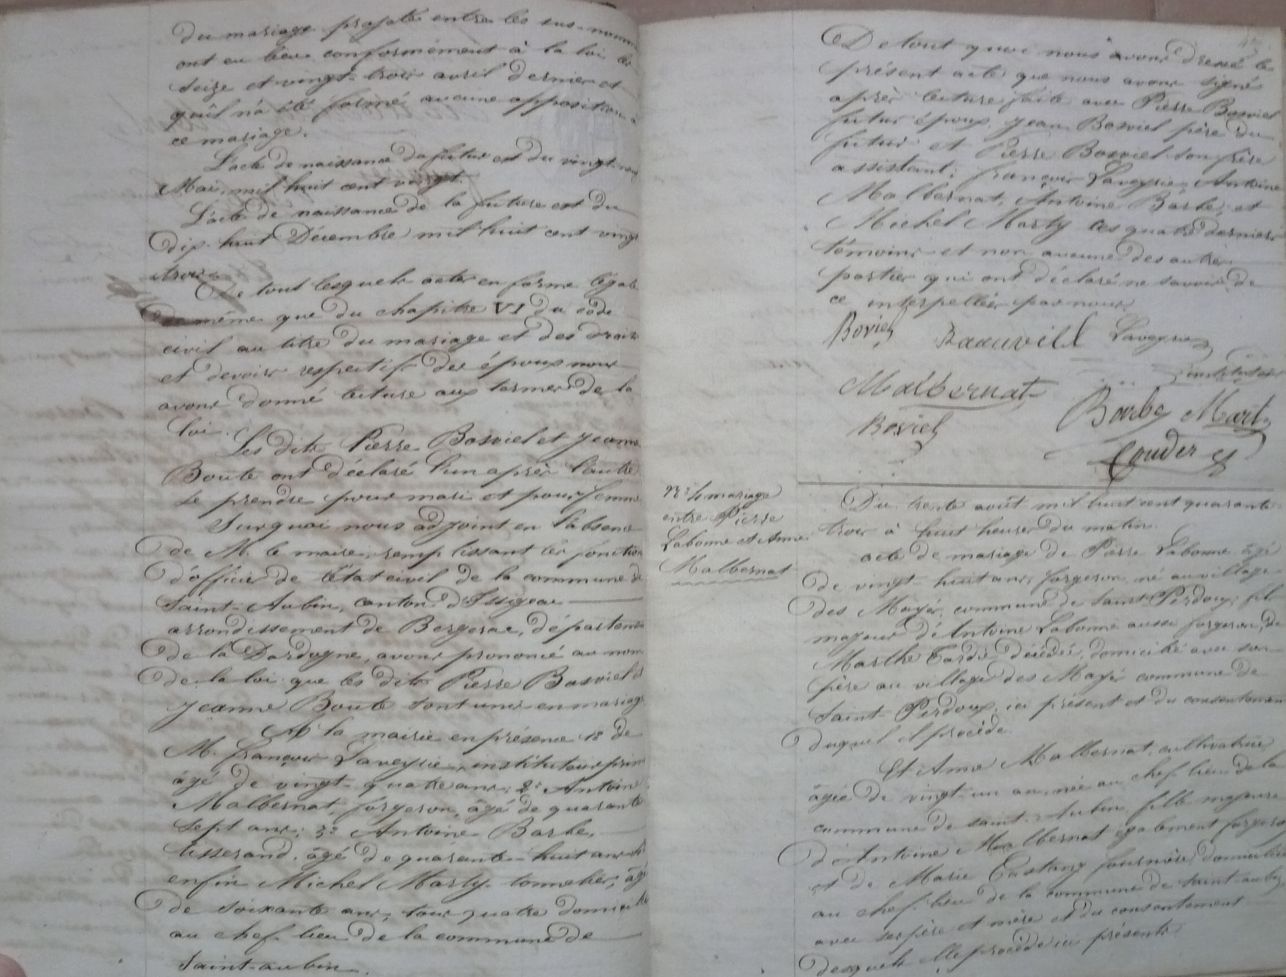 du mariage projeté entre les sus-nommés
ont eu lieu conformément à la loi les
seize et vingt-trois avril dernier et
qu'il n'a été formé aucune opposition à
ce mariage.
L'acte de naissance du futur est du vingt
Mai mil huit cent vingt.
L'acte de naissance de la future est du
dix-huit Décembre mil huit cent vingt
trois.
De tout lesquels actes en forme légale
de même que du chapitre VI du code
civil au titre du mariage et des droits
et devoirs respectifs des époux nous
avons donné lecture aux termes de la
loi.
Les dits Pierre Bosviel et Jeanne
Boute ont déclaré l'un après l'autre
se prendre pour mari et pour femme
Sur quoi nous adjoint en l'absence
de M. le maire, remplissant les fonctions
d'officier de l'état civil de la commune de
Saint-Aubin, canton d'Issigeac
arrondissement de Bergerac, département
de la Dordogne, avons prononcé au nom
de la loi que les dits Pierre Bosviel et
Jeanne Boute sont unis en mariage
A la mairie en présence 1º de
M. François Laveyrie, instituteur
âgé de vingt-quatre ans; 2º Antoine
Malbernat, forgeron, âgé de quarante
sept ans; 3º Antoine Barbe,
tisserand, âgé de quarante-huit ans
enfin Michel Marty, tonnelier, âgé
de soixante ans, tous quatre domiciliés
au chef-lieu de la commune de
Saint-aubin.
De tout quoi nous avons dressé le
présent acte que nous avons signé
après lecture faite avec Pierre Bosviel
futur époux, Jean Bosviel père du
futur et Pierre Bosviel son frère
assistant; françois Laveyrie, Antoine
Malbernat, Antoine Barbe, et
Michel Marty les quatre derniers
témoins et non aucune des autres
parties qui ont déclaré ne savoir de
ce interpellées par nous.
Boviel Laveyrie
instituteur
Malbernat Barbe Marty
Boviel
Couderc
Nº 4 mariage
entre Pierre
Labonne et Anne
Malbernat
Du trente août mil huit cent quarante
trois à huit heures du matin.
acte de mariage de Pierre Labonne âgé
de vingt-huit ans, forgeron, né au village
des Mayés, commune de Saint-Perdoux, fils
majeur d'Antoine Labonne aussi forgeron, de
Marthe Tardié décédée, domicilié avec son
père au village des Mayés commune de
Saint-Perdoux, ici présent et du consentement
duquel il procède.
Et Anne Malbernat, cultivatrice
âgée de vingt-un an, née au chef-lieu de la
commune de Saint-Aubin, fille majeure
d'Antoine Malbernat également forgeron
et de Marie Castang domiciliée
au chef-lieu de la commune de Saint-aubin
avec ses père et mère et du consentement
desquels elle procède ici présents